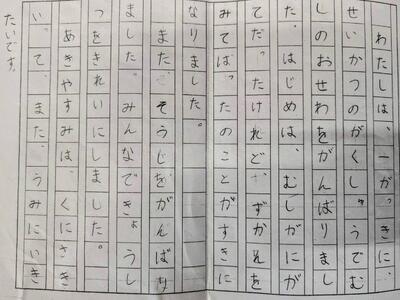 わたしは、一がっきに、
せいかつのがくしゅうでむ
しのおせわをがんばりまし
た。はじめは、むしがにが
てだったけれど、ずかんを
みてばったのことがすきに
なりました。
また、そうじをがんばり
ました。みんなできょうし
つをきれいにしました。
あきやすみは、くにさき
いって、また、うみにいき
たいです。